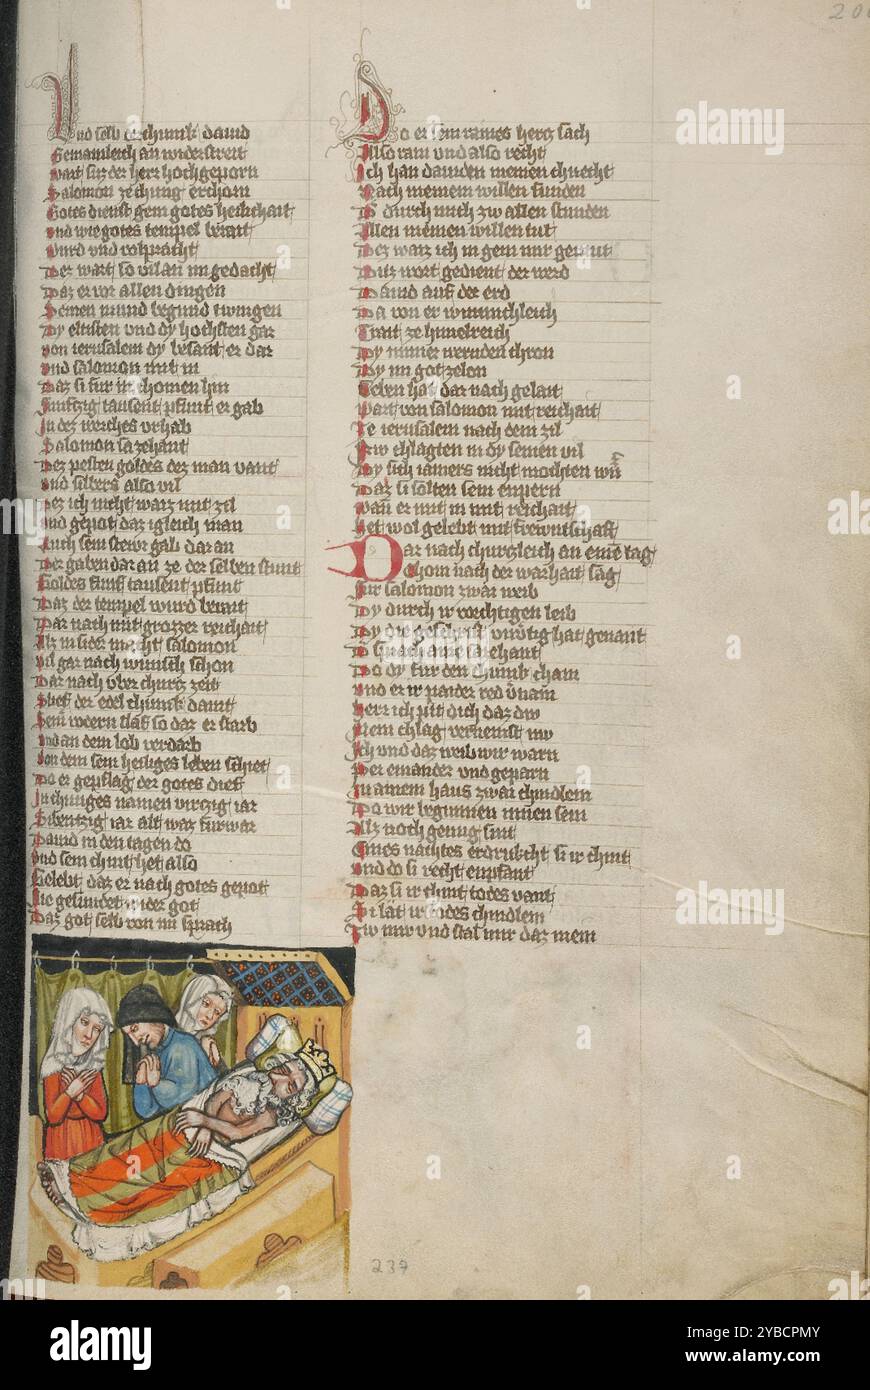 Und selb der chunik dauid
Gemainleich an widerstreit
wart fur der herr hochgeporn
Salomon ze chunig erchorn
Gotes dienst gem gotes heilichait
und wie gotes tempel berait
wurd und volpracht
Der wart so vil an im gedacht
Daz er vor allen dingen
Seinen mund begund twingen
Dy eltisten und dy hochsten gar
von ierusalem dy besant er dar
und salomon mit in
Daz si fur in chomen hin
funftzig tausent pfunt er gab
In dez werches urhab
Salomon sa zehant
Dez pesten goldes dez man vant
und silbers also vil
und gepot daz igleich man
Auch sein stewr gab dar an
Der gaben dar an ze der selben stunt
Goldes funf tausent pfunt
Daz der tempel wurd berait
Dar nach mit grozzer reichait
vil gar nach wunsch schon
Dar nach uber churtz zeit
Slief der edel chunik dauit
Sein vodern slaf so dar er starb
und an dem lob verdarb
von dem sein heiliges leben schiet
Do er gepflag der gotes diet
In chuniges namen virtzig iar
Sibentzig iar alt waz fur war
Dauid in den tagen do
und sein chint het also
Gelebt daz er nach gotes gepot
Nie gesundet wider got
Daz got selb von im sprach
Do er sein raines hertz sach
Also rain und also recht
Ich han dauiden meinen chnecht
Nach meinem willen funden
Der durch mich zw allen stunden
Allen meinen willen tut
Ditz wort gedient der werd
Dauid auf der erd
Da von er wunnichleich
Trait ze himelreich
Dy nimer werunden chron
Dy im got ze lon
Geben hat dar nach gelait
wart von salomon mit reichait
Ze ierusalem nach dem zil
Nw chlagten in dy seinen vil
Dy sich iamers nicht mochten
Daz si solten sein enpern
wan er mit in mit reichait
Het wol gelebt mit frewntschaft
Dar nach churtzleich an eine tag
Chom nach der warhait sag
fur salomon zwai weib
Dy durch ir vorchtigen leib
Do dy fur den chunik cham
und er ir paider red vernam
herr ich pit dich daz dw
Mein chlag vernemst nw
Ich und daz weib wir warn
Per einander und geparn
In ainem haus zwai chindlein
Do wir beginnen innen sein
Alz noch genug sint
Eines nachtes erdrukcht si ir chint
und do si recht enpfant
Daz si ir chint todes vant
Si lait ir todes chindlein
Zw mir und stal mir daz mein
237
alamy
Image ID: 2YBCPMY
www.alamy.com